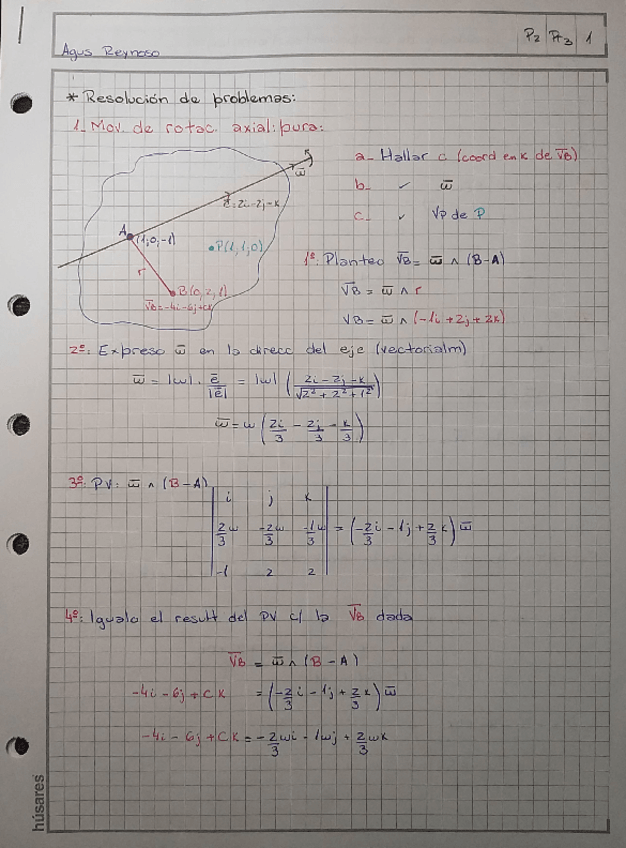 Agus Reynoso
P2 | P3 | 1
* Resolución de problemas:
1_ Mov. de rotac. axial: pura:
ω̅
e̅: 2i-2j-k
A (1;0;-1)
P(1,1,0)
r
B (0,2,1)
V̅B=-4i-6j+ck
a- Hallar c (coord en k de V̅B)
b- ✓ ω̅
c- ✓ VP de P
1º: Planteo V̅B = ω̅ ∧ (B-A)
V̅B = ω̅ ∧ r
VB = ω̅ ∧ (-1i + 2j + 2k)
2º: Expreso ω̅ en la direcc del eje (vectorialm)
ω̅ = |ω| . e̅/|e̅| = |ω| ( (2i - 2j - k)/√(2²+2²+1²) )
ω̅ = ω ( 2i/3 - 2j/3 - k/3 )
3º: PV: ω̅ ∧ (B-A)
i j k
2/3 ω -2/3 ω -1/3 ω = (-2/3 i - 1j + 2/3 k) ω̅
-1 2 2
4º: Igualo el result del PV c/ la V̅B dada
V̅B = ω̅ ∧ (B-A)
-4i - 6j + CK = (-2/3 i - 1j + 2/3 k) ω̅
-4i - 6j + CK = -2/3 ωi - 1ωj + 2/3 ωk
húsares